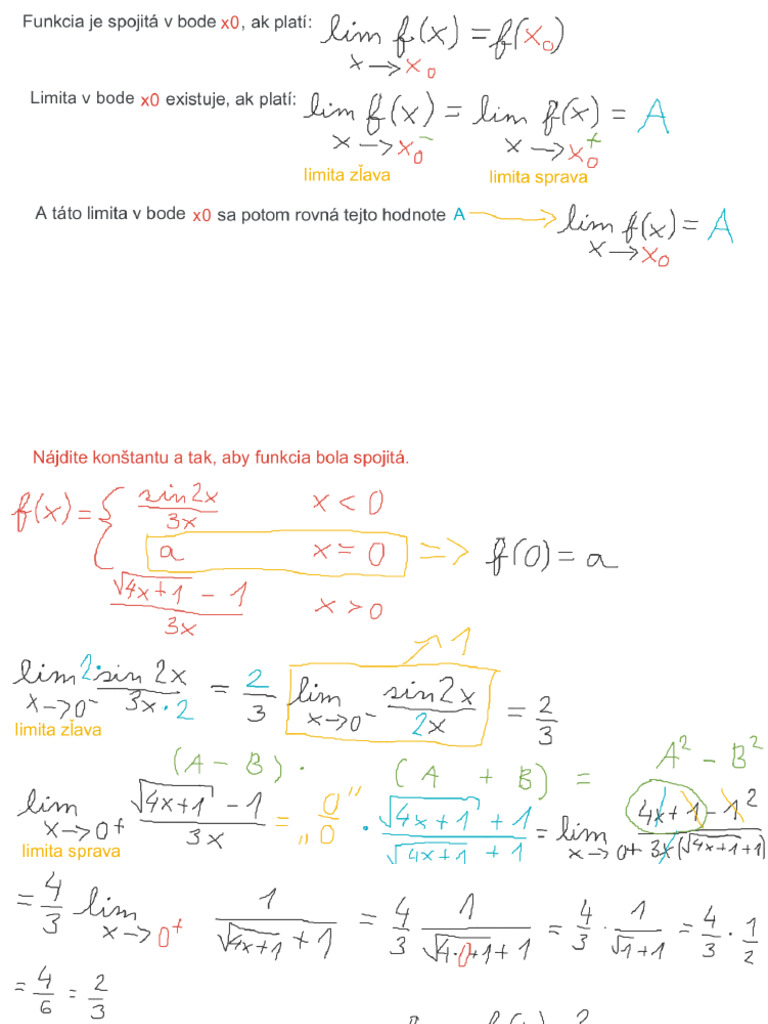 Funkcia je spojitá v bode x0, ak platí: lim f(x) = f(x₀)
x → x₀
Limita v bode x0 existuje, ak platí: lim f(x) = lim f(x) = A
x → x₀⁻ x → x₀⁺
limita zľava limita sprava
A táto limita v bode x0 sa potom rovná tejto hodnote A → lim f(x) = A
x → x₀
Nájdite konštantu a tak, aby funkcia bola spojitá.
f(x) = { sin2x / 3x x < 0
a x = 0 => f(0) = a
(√(4x+1) - 1) / 3x x > 0
1
lim 2·sin2x / 3x·2 = 2/3 lim sin2x / 2x = 2/3
x→0⁻ x→0⁻
limita zľava
(A - B) · (A + B) = A² - B²
lim (√(4x+1) - 1) / 3x = "0/0" · (√(4x+1) + 1) / (√(4x+1) + 1) = lim (4x+1-1²) / 3x(√(4x+1)+1)
x→0+ x→0+
limita sprava
= 4/3 lim 1 / (√(4x+1) + 1) = 4/3 1 / (√(4·0+1) + 1) = 4/3 · 1 / (√1+1) = 4/3 · 1/2
x→0⁺
= 4/6 = 2/3